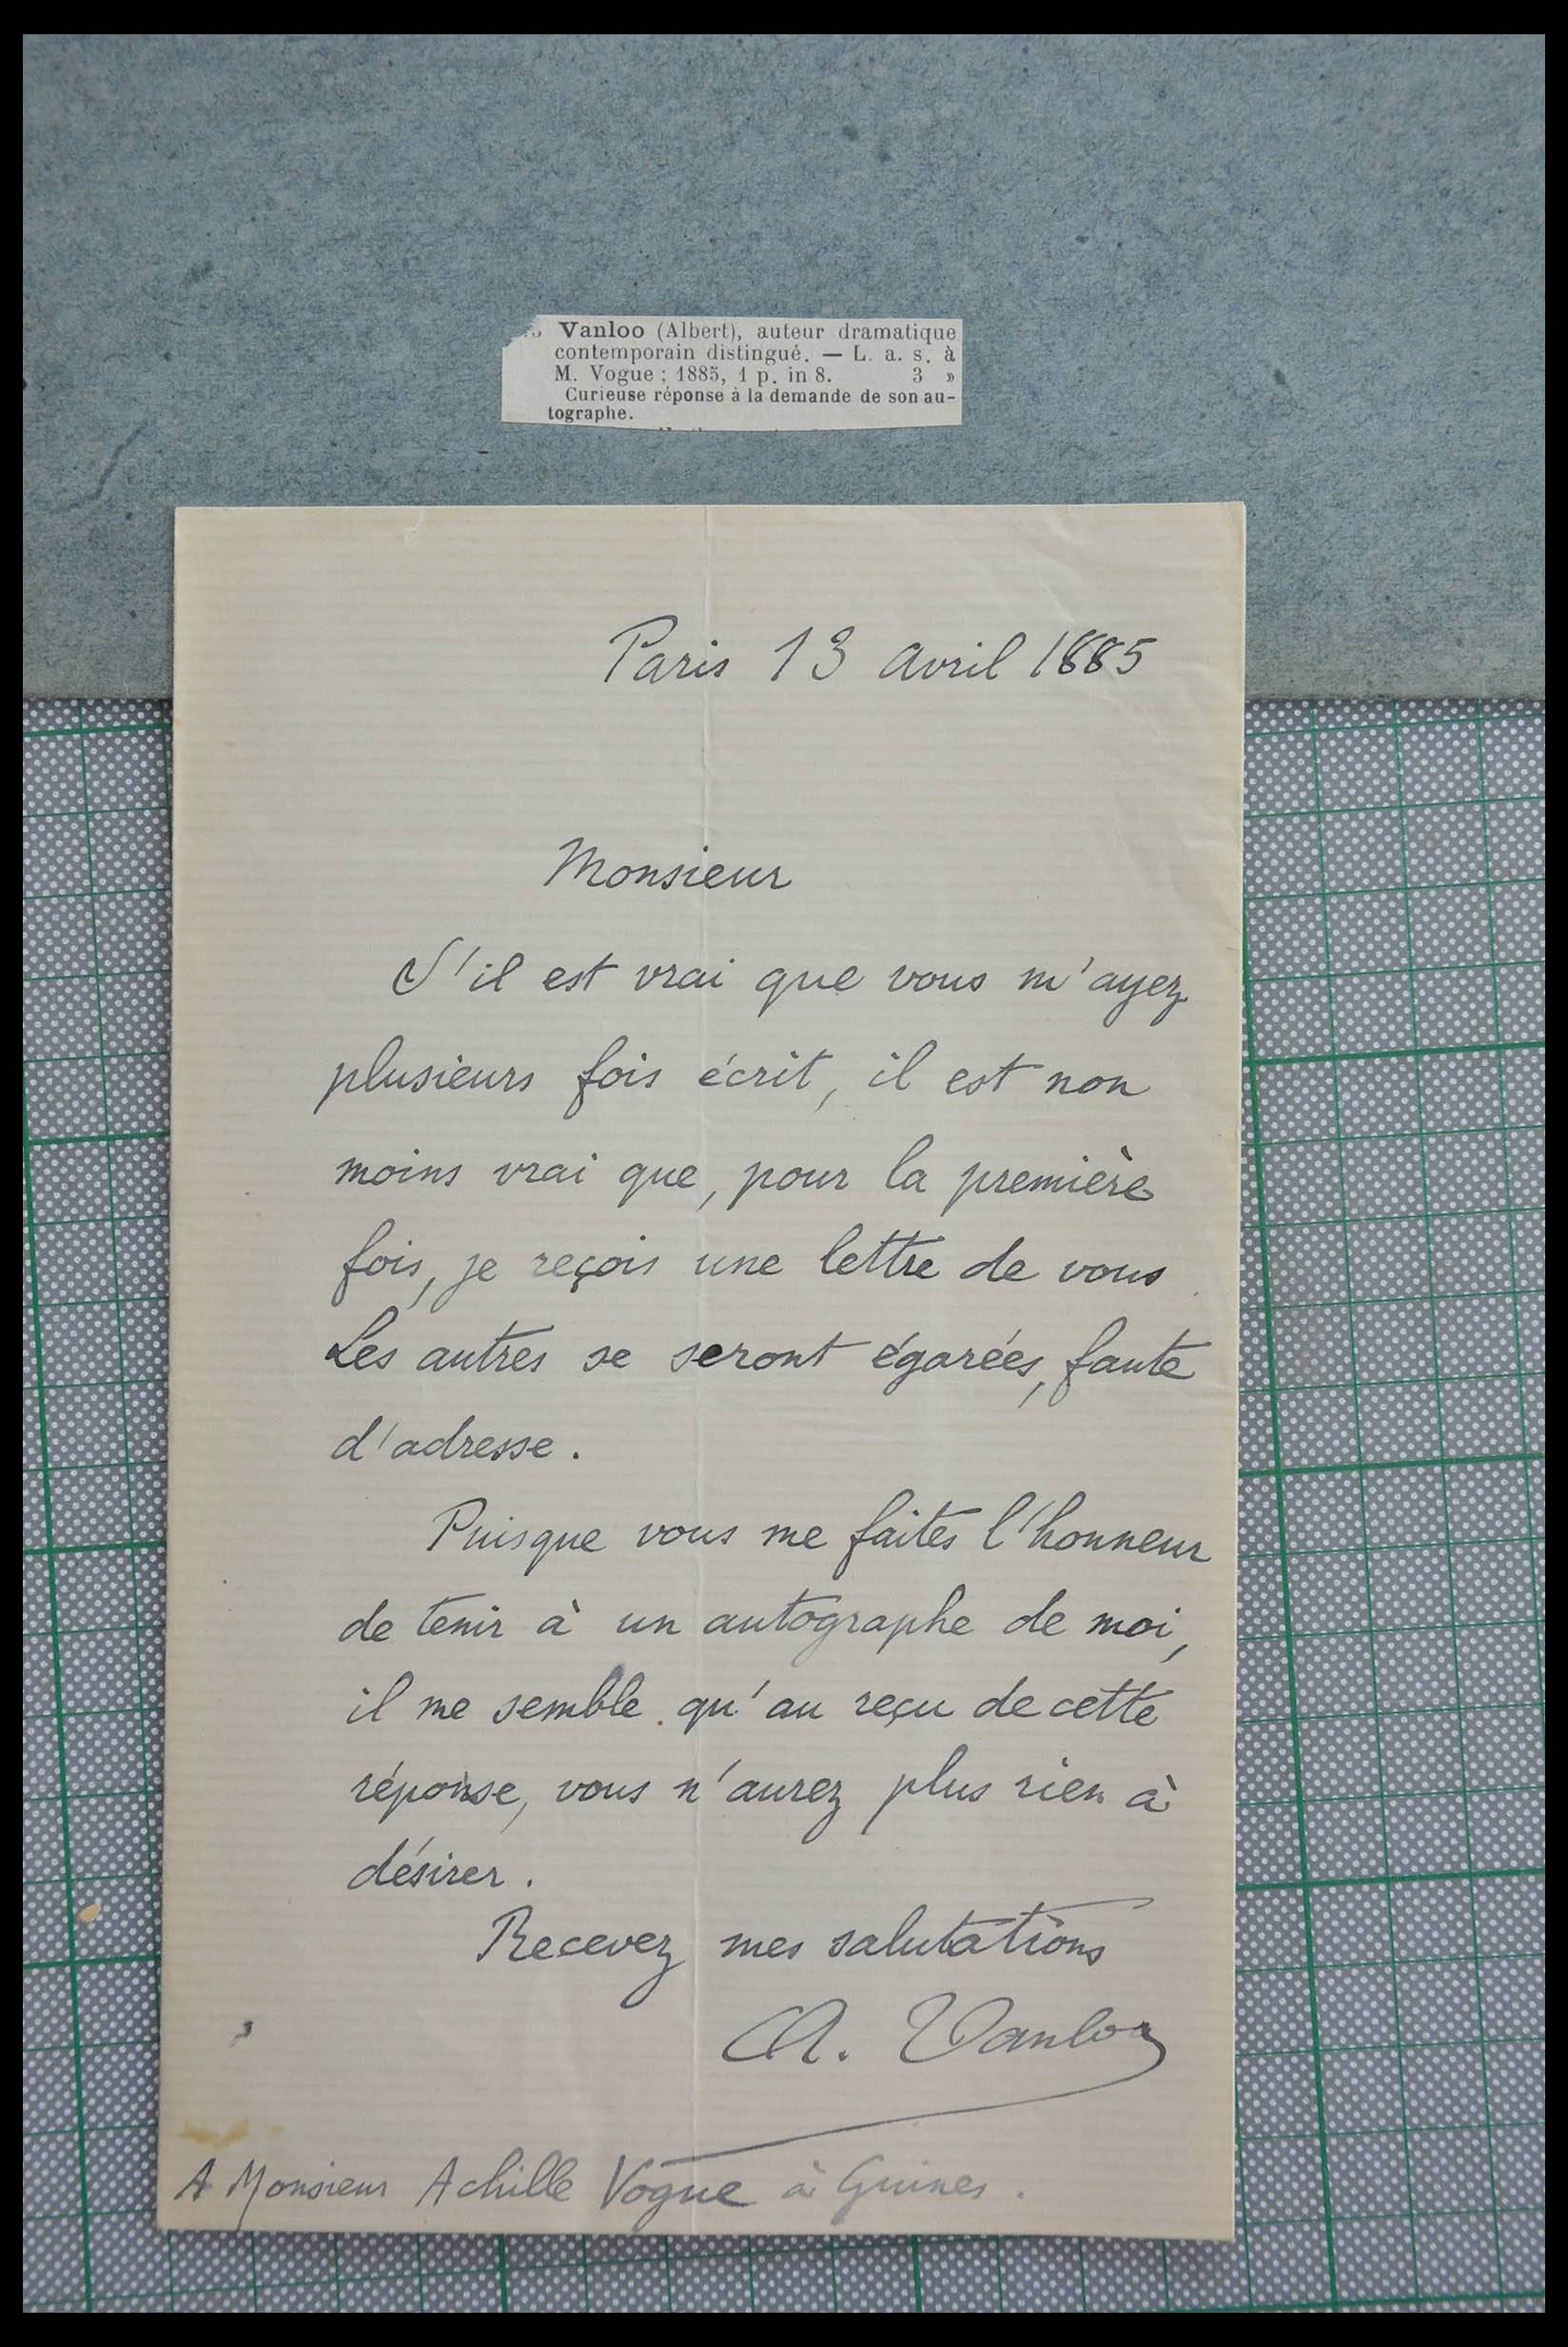 Vanloo (Albert), auteur dramatique
contemporain distingué. — L. a. s. à
M. Vogue ; 1885, 1 p. in 8. 3 »
Curieuse réponse à la demande de son au-
tographe.
Paris 13 avril 1885
Monsieur
S'il est vrai que vous m'ayez
plusieurs fois écrit, il est non
moins vrai que, pour la première
fois, je reçois une lettre de vous.
Les autres se seront égarées, faute
d'adresse.
Puisque vous me faites l'honneur
de tenir à un autographe de moi,
il me semble qu'au reçu de cette
réponse, vous n'aurez plus rien à
désirer.
Recevez mes salutations
A. Vanloo
A Monsieur Achille Vogue à Guines.